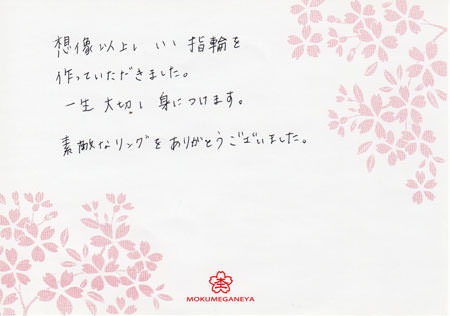 想像以上に いい 指輪を
作っていただきました。
一生 大切に 身につけます。
素敵なリングをありがとうございました。
MOKUMEGANEYA